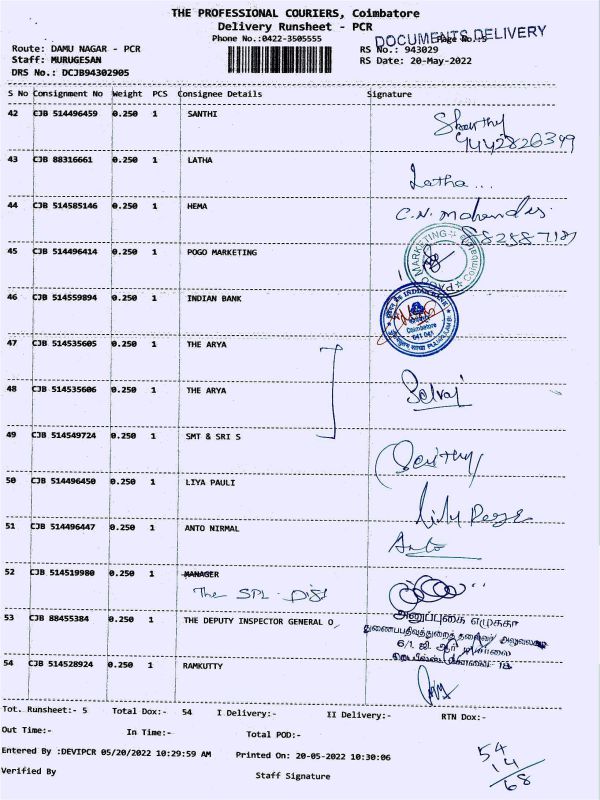 THE PROFESSIONAL COURIERS, Coimbatore
Delivery Runsheet - PCR
DOCUMENTS DELIVERY
Phone No.:0422-3505555 Page No.:5
Route: DAMU NAGAR - PCR RS No.: 943029
Staff: MURUGESAN RS Date: 20-May-2022
DRS No.: DCJB94302905
S No Consignment No Weight PCS Consignee Details Signature
42 CJB 514496459 0.250 1 SANTHI
9442826349
43 CJB 88316661 0.250 1 LATHA
Latha...
44 CJB 514585146 0.250 1 HEMA
C.N.
45 CJB 514496414 0.250 1 POGO MARKETING
MARKETING Coimbatore
46 CJB 514559894 0.250 1 INDIAN BANK
INDIAN BANK
Coimbatore
641 041
47 CJB 514535605 0.250 1 THE ARYA
48 CJB 514535606 0.250 1 THE ARYA
Selvaj
49 CJB 514549724 0.250 1 SMT & SRI S
50 CJB 514496450 0.250 1 LIYA PAULI
51 CJB 514496447 0.250 1 ANTO NIRMAL
Anto
52 CJB 514519980 0.250 1 MANAGER
The SPL. Dist
53 CJB 88455384 0.250 1 THE DEPUTY INSPECTOR GENERAL O
அனுப்புகை எழுத்தர்
துணைப்பதிவுத்துறைத் தலைவர் அலுவலகம்
54 CJB 514528924 0.250 1 RAMKUTTY
Tot. Runsheet:- 5 Total Dox:- 54 I Delivery:- II Delivery:- RTN Dox:-
Out Time:- In Time:- Total POD:-
Entered By :DEVIPCR 05/20/2022 10:29:59 AM Printed On: 20-05-2022 10:30:06
Verified By Staff Signature
54
14
68